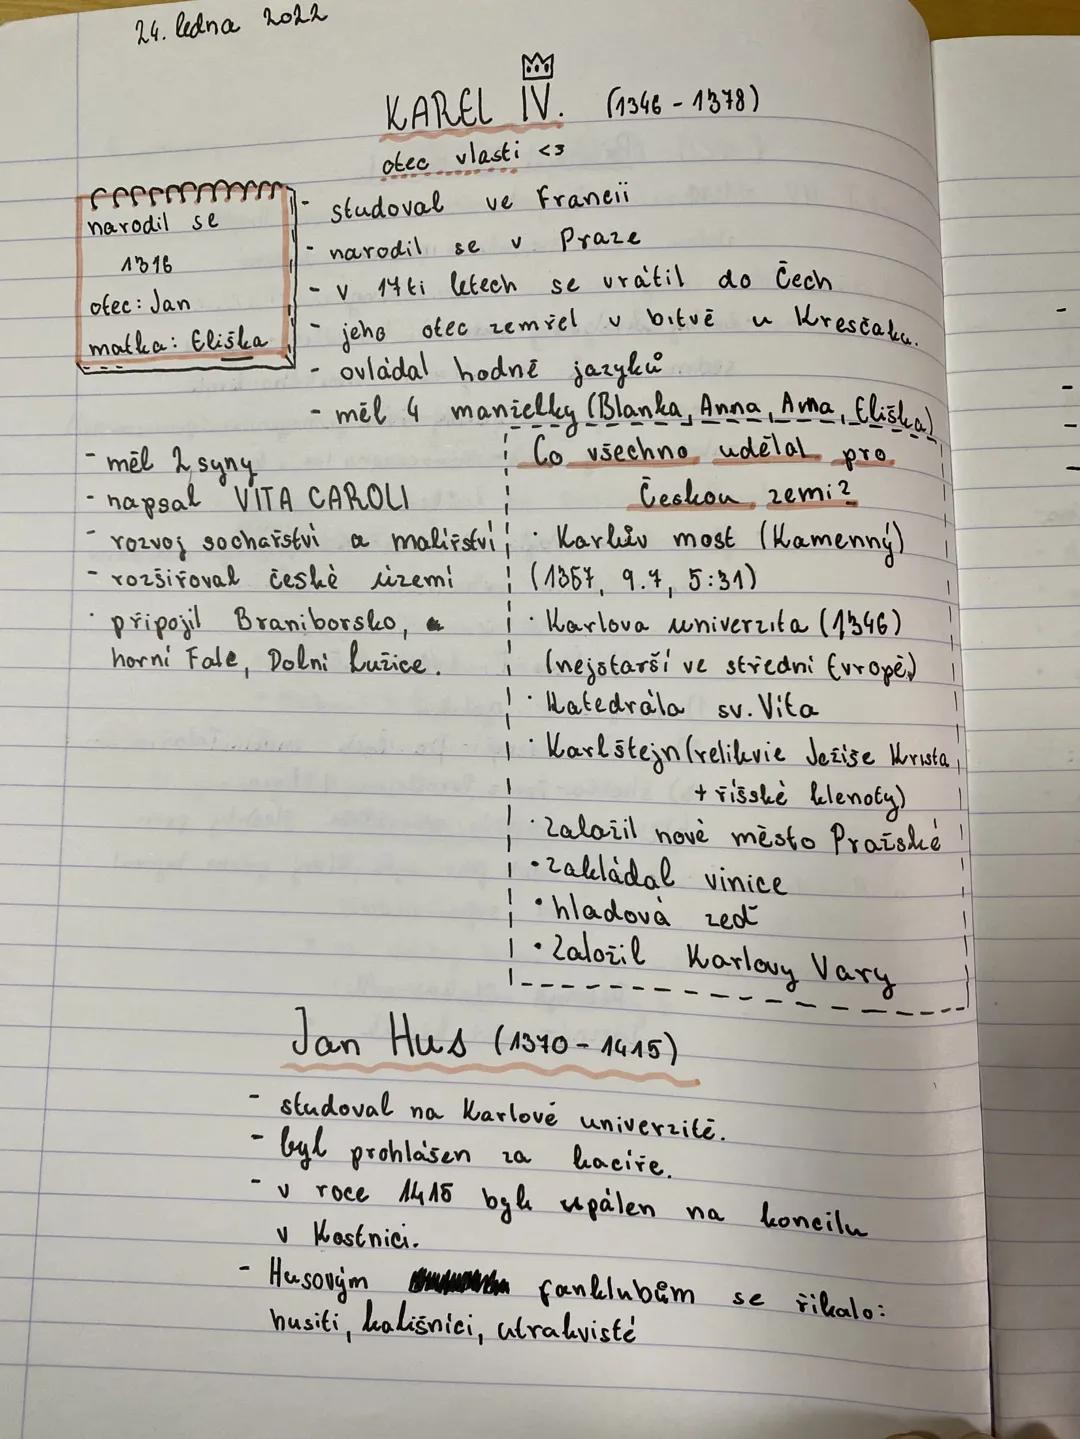 24. ledna 2022
KAREL IV. (1346 - 1378)
otec vlasti <3
narodil se
1316
otec: Jan
matka: Eliška
- studoval ve Francii
- narodil se v Praze
- v 17ti letech se vrátil do Čech
- jeho otec zemřel v bitvě u Kresčaku.
- ovládal hodně jazyků
- měl 4 manželky (Blanka, Anna, Anna, Eliška)
- měl 2 syny
- napsal VITA CAROLI
- rozvoj sochařství a malířství
- rozšiřoval české území
· připojil Braniborsko,
horní Fale, Dolní Lužice.
Co všechno udělal pro
Českou zemi?
· Karlův most (Kamenný)
(1357, 9.7, 5:31)
· Karlova univerzita (1346)
(nejstarší ve střední Evropě)
· Katedrála sv. Víta
· Karlštejn (relikvie Ježíše Krista
+ říšské klenoty)
· Založil nové město Pražské
· zakládal vinice
· hladová zeď
· Založil Karlovy Vary
Jan Hus (1370 - 1415)
- studoval na Karlově univerzitě.
- byl prohlášen za kacíře.
- v roce 1415 byl upálen na koncilu
v Kostnici.
- Husovým fanklubům se říkalo:
husiti, kališníci, utrakvisté